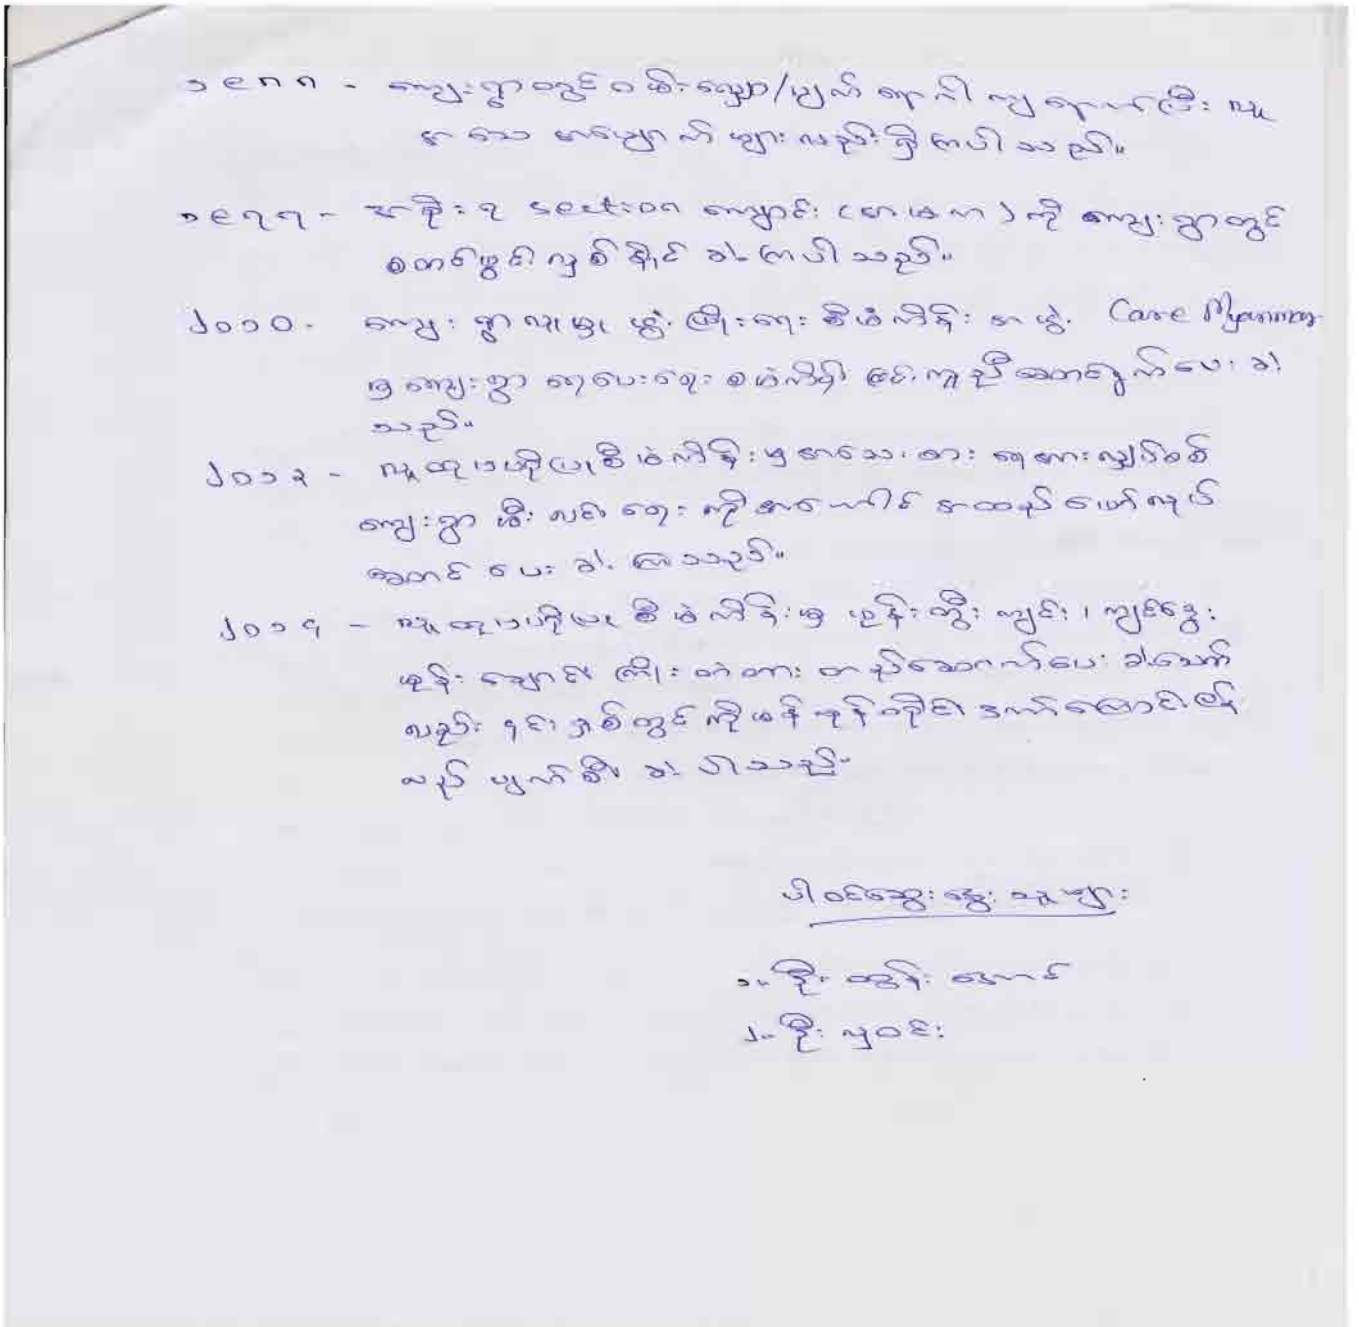 ၁၉၈၈ - ကျေးရွာတွင် ဝမ်းလျှော/ပျက် ရောဂါ ကျရောက်ပြီး လူ
အသေ အပျောက် များလည်း ရှိခဲ့ပါသည်။
၁၉၇၇ - အစိုးရ section ကျောင်း (အမက) ကို ကျေးရွာတွင်
စတင်ဖွင့်လှစ်နိုင် ခဲ့ကြပါသည်။
၂၀၁၀ - ကျေးရွာလူမှု ဖွံ့ဖြိုးရေး စီမံကိန်း အဖွဲ့ Care Myanmar
မှ ကျေးရွာ ရေပေးရေး စီမံကိန်း ဖြင့် ကူညီဆောင်ရွက်ပေး ခဲ့
သည်။
၂၀၁၃ - လူထုဗဟိုပြုစီမံကိန်း မှ အသေးစား ရေအားလျှပ်စစ်
ကျေးရွာ မီးလင်းရေး ကိုအကောင် အထည် ဖော်လုပ်
ဆောင် ပေး ခဲ့ကြသည်။
၂၀၁၄ - လူထုဗဟိုပြု စီမံကိန်းမှ ဖုန်းကြီးကျင်း၊ ကျင်ဒွေး
ဖုန်းချောင်း ကြိုးတံတား တည်ဆောက်ပေး ခဲ့သော်
လည်း ၎င်းနှစ်တွင် ကိုမန်မုန်တိုင်း ဒဏ်ကြောင့် ပြန်
လည် ပျက်စီး ခဲ့ ပါသည်။
ပါဝင်ဆွေးနွေး သူများ
၁။ ဦး ထွန်းအောင်
၂။ ဦး လှဝင်း